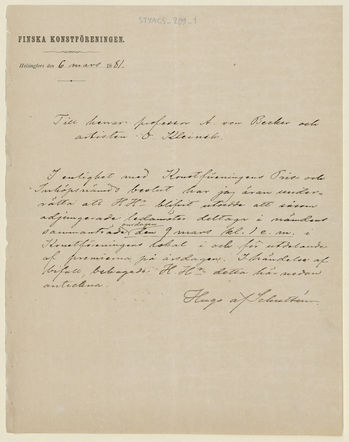 STYACS_209_1
FINSKA KONSTFÖRENINGEN.
Helsingfors den 6 mars 1881.
Till herrar professor A. von Becker och
artisten O Kleineh.
I enlighet med Konstföreningens Pris och
Inköpsnämnds beslut har jag äran under-
rätta att H.Hr blifvit utsedde att såsom
adjungerade ledamöter deltaga i nämndens
sammanträde
onsdagen
den 9 mars kl. 1 e. m. i
Konstföreningens lokal i och för utdelande
af premierna på årsdagen. I händelse af
förfall, behagade H Hr detta här nedan
anteckna.
Hugo af Schultén.